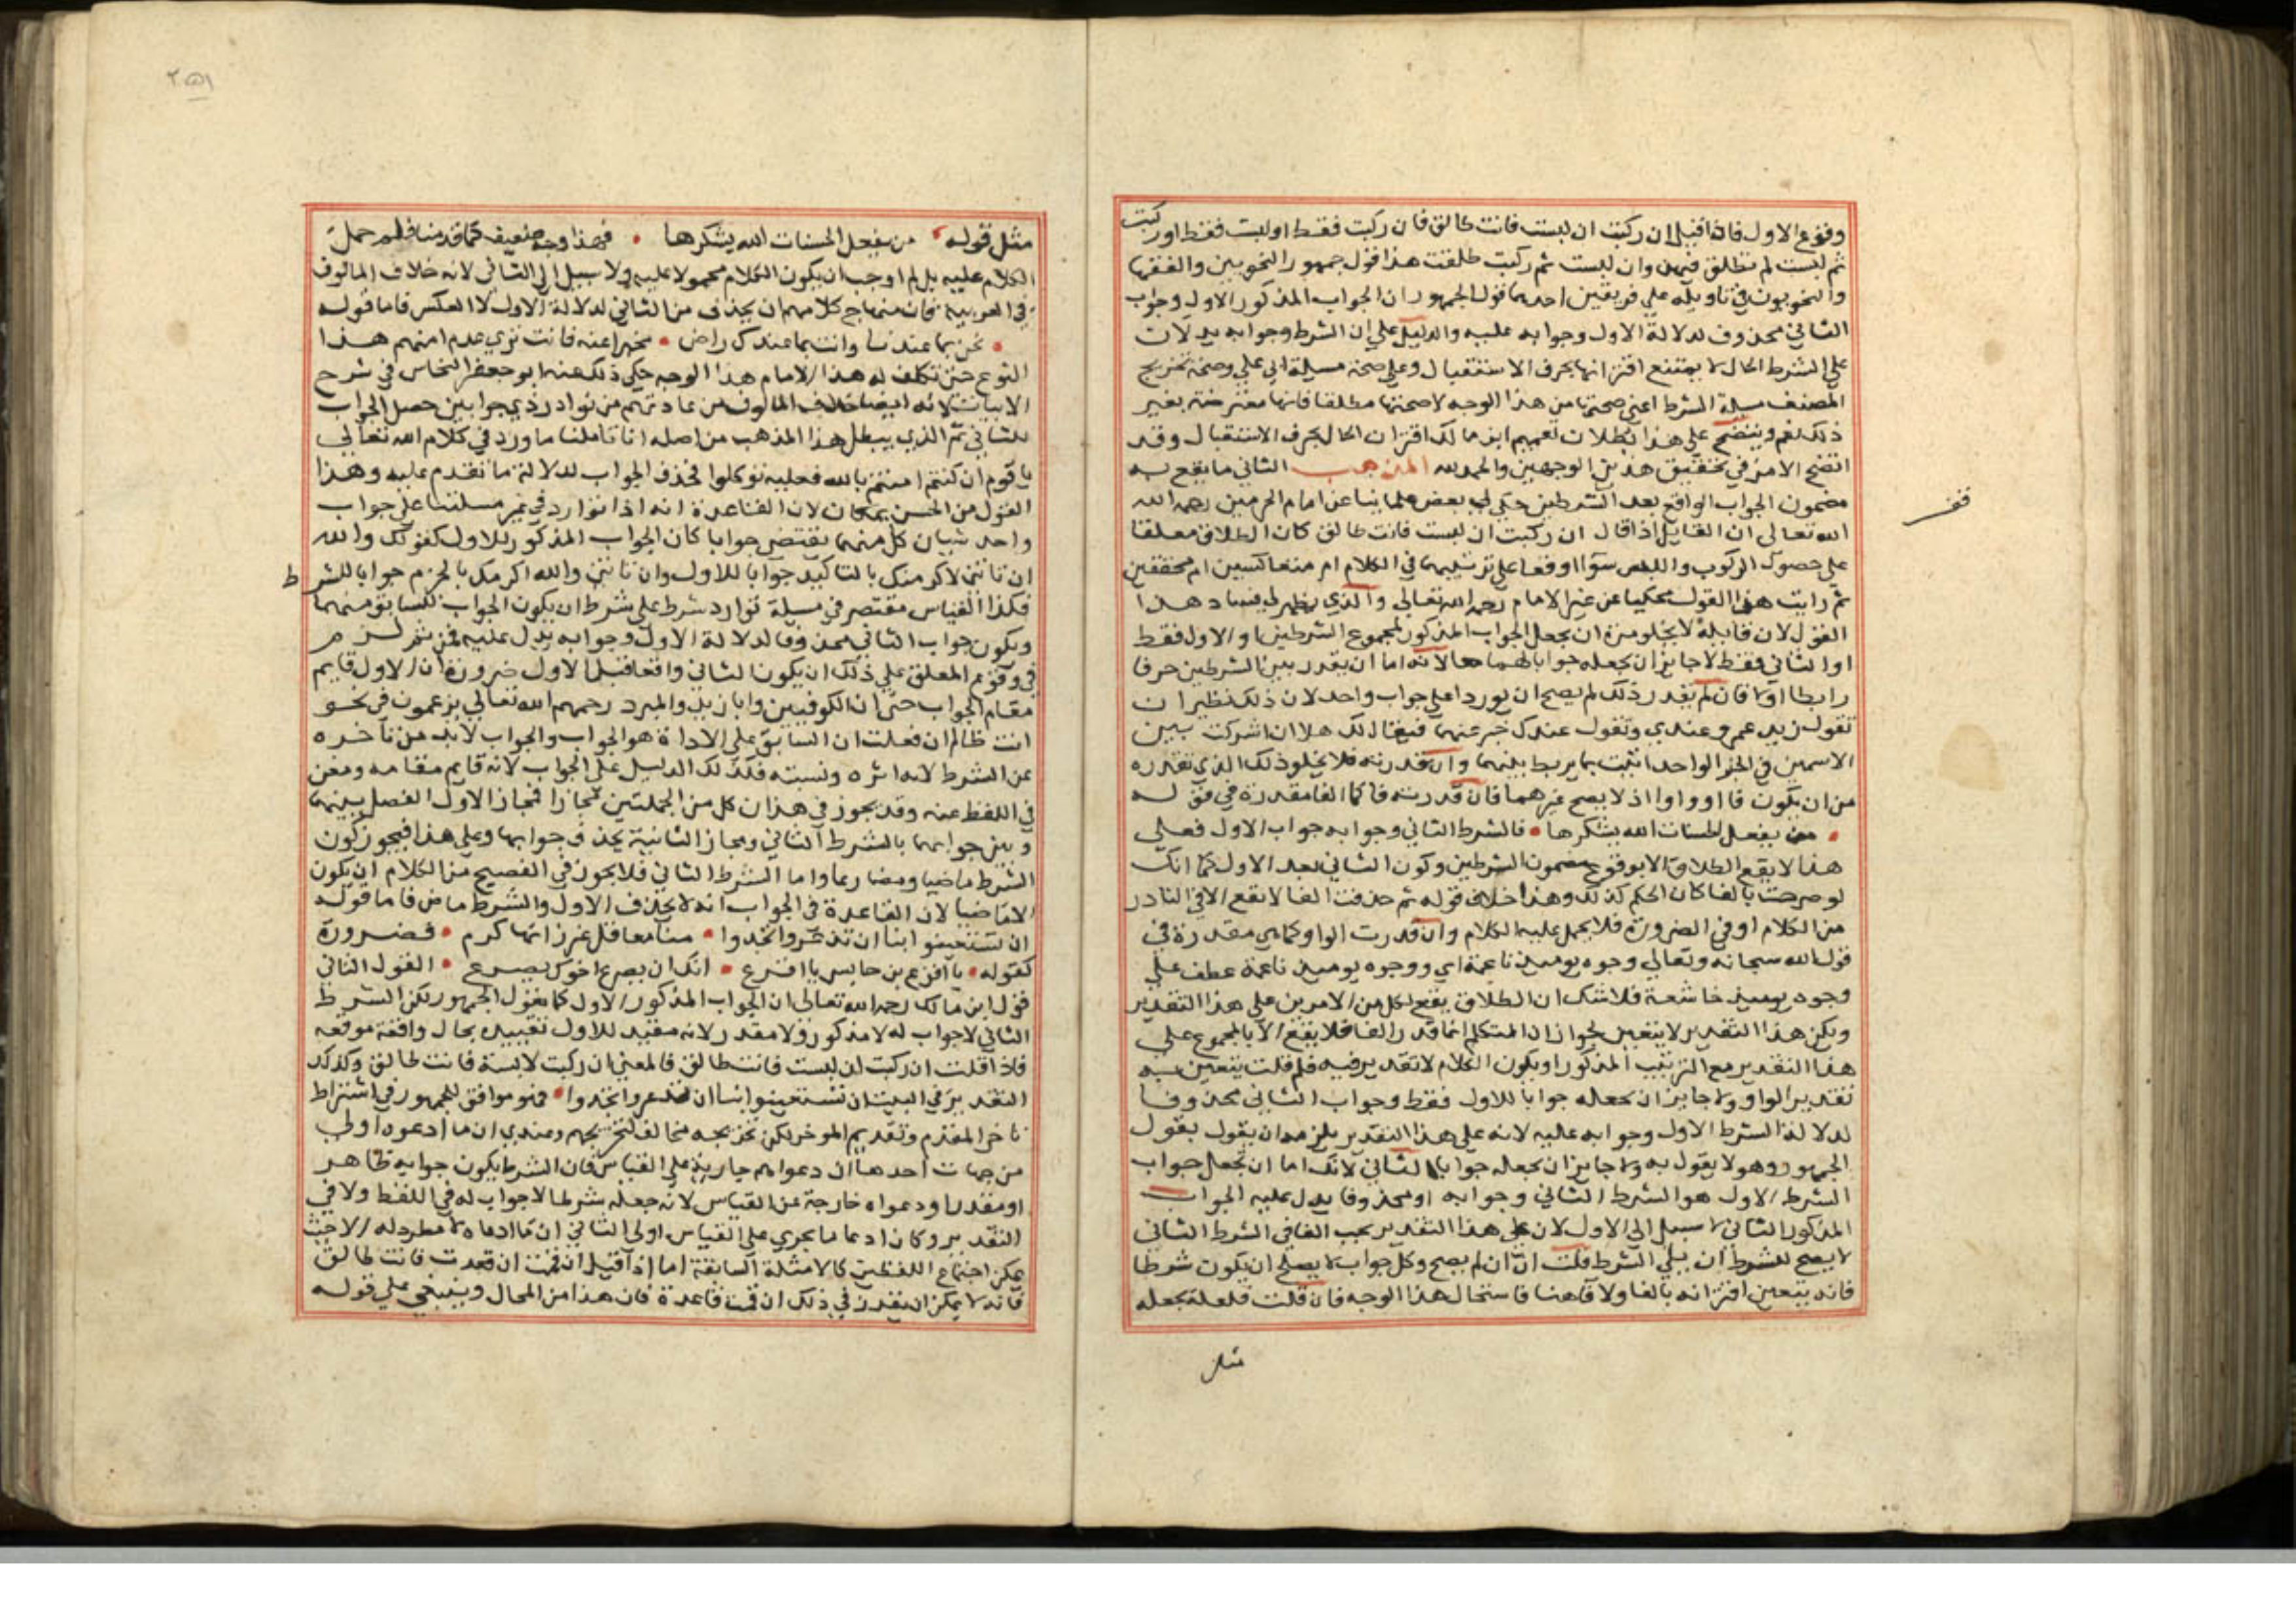 وقوع الاول فاذا قيل ان ركبت ان لبست فانت طالق فان ركبت فقط او لبست فقط او ركبت
ثم لبست لم تطلق فيهن وان لبست ثم ركبت طلقت هذا قول جمهور النحويين والفقها
والنحويون في تاويله علي فريقين احدهما قول الجمهور ان الجواب المذكور الاول وجواب
الثاني محذوف لدلالة الاول وجوابه عليه والدليل علي ان الشرط وجوابه يدلان
علي الشرط الحال لا يمتنع اقترانها بحرف الاستقبال وعلي صحة مسيلة ابي علي وصحة تخريج
المصنف مسيلة الشرط اعني صحتها من هذا الوجه لا صحتها مطلقا فانها معترضة بغير
ذلك نعم ويتضح علي هذا بطلان تعميم ابن مالك اقتران الحال بحرف الاستقبال وقد
اتضح الامر في تحقيق هذين الوجهين والحمد لله المذهب الثاني ما يقع به
مضمون الجواب الواقع بعد الشرطين حكي لي بعض علماينا عن امام الحرمين رحمه الله
الله تعالى ان القايل اذا قال ان ركبت ان لبست فانت طالق كان الطلاق معلقا
على حصول الركوب واللبس سوآا وقعا على ترتيبهما في الكلام ام متعاكسين ام مجتمعين
ثم رايت هذا القول محكيا عن غير الامام رحمه الله تعالي والذي يظهر لي فساد هذا
القول لان قايله لا يخلو من ان يجعل الجواب المذكور لمجموع الشرطين او الاول فقط
او الثاني فقط لا جايز ان يجعله جوابا لهما معا لانه اما ان يقدر بين الشرطين حرفا
رابطا او لا فان لم يقدر ذلك لم يصح ان يوردا علي جواب واحد لان ذلك نظير ان
تقول زيد عمرو عندي وتقول عندك خبر عنهما فيقال لك هلا ان اشركت بين
الاسمين في الخبر الواحد اتيت بما يربط بينهما وان قدرته فلا يخلو ذلك الذي تقدره
من ان يكون فا او واوا اذ لا يصح غيرهما فان قدرته فا كالفا مقدرة في قوله
من يفعل الحسنات الله يشكرها فالشرط الثاني وجوابه جواب الاول فعلي
هذا لا يقع الطلاق الا بوقوع مضمون الشرطين وكون الثاني بعد الاول كما انك
لو صرحت بالفا كان الحكم كذلك وهذا خلاف قوله ثم حذفت الفا لا تقع الا في النادر
من الكلام او في الضرورة فلا يحمل عليه الكلام وان قدرت الواو كما هي مقدرة في
قول الله سبحانه وتعالي وجوه يوميذ ناعمة اي ووجوه يوميذ ناعمة عطف علي
وجوه يوميذ خاشعة فلا شك ان الطلاق يقع لكل من الامرين علي هذا التقدير
ولكن هذا التقدير لا يتعين لجواز ان المتكلم انما قدر الفا فلا يقع الا بالمجموع علي
هذا التقدير مع الترتيب المذكور او يكون الكلام لا تقدير فيه فلم قلت يتعين به
تقدير الواو ولا جايز ان يجعله جوابا للاول فقط وجواب الثاني محذوفا
لدلالة الشرط الاول وجوابه عليه لانه علي هذا التقدير يلزمه ان يقول بقول
الجمهور وهو لا يقول به ولا جايز ان يجعله جوابا للثاني لانك اما ان تجعل جواب
الشرط الاول هو الشرط الثاني وجوابه او محذوفا يدل عليه الجواب
المذكور الثاني لا سبيل الي الاول لان علي هذا التقدير يجب الفا في الشرط الثاني
لا يصح للشرط ان يلي الشرط قلت ان ان لم يصح وكل جواب لا يصلح ان يكون شرطا
فانه يتعين اقترانه بالفا ولا فا هنا فاستحال هذا الوجه فان قلت فلعله يجعله
مثل
مثل قوله من يفعل الحسنات الله يشكرها فهذا وجه ضعيف كما قدمنا فلم حمل
الكلام عليه بل لم اوجب ان يكون الكلام محمولا عليه ولا سبيل الي الثاني لانه خلاف المالوف
في العربية فان منهاج كلامهم ان يحذف من الثاني لدلالة الاول لا العكس فاما قوله
نحن بما عندنا وانت بما عندك راض مخبرا عنه فانت تري عدم امنهم هذا
النوع حتي تكلف له هذا الامام هذا الوجه حكي ذلك عنه ابو جعفر النحاس في شرح
الابيات لانه ايضا خلاف المالوف من عادتهم من توارد ذي جوابين حصل الجواب
للثاني ثم الذي يبطل هذا المذهب من اصله انا تاملنا ما ورد في كلام الله تعالي
يا قوم ان كنتم امنتم بالله فعليه توكلوا فحذف الجواب لدلالة ما تقدم عليه وهذا
القول من الحسن بمكان لان القاعدة انه اذا توارد في غير مسلتنا علي جواب
واحد شيان كل منهما يقتضي جوابا كان الجواب المذكور للاول كقولك والله
ان تاتني لاكرمنك بالتاكيد جوابا للاول وان تاتني والله اكرمك بالجزم جوابا للشرط
فكذا القياس يقتضي في مسيلة توارد شرط علي شرط ان يكون الجواب للسابق منهما
ويكون جواب الثاني محذوفا لدلالة الاول وجوابه يدل عليه فمن ثم لزم
في وقوع المعلق علي ذلك ان يكون الثاني واقعا قبل الاول ضرورة ان الاول قايم
مقام الجواب حتي ان الكوفيين وابا زيد والمبرد رحمهم الله تعالي يزعمون في نحو
انت ظالم ان فعلت ان السابق علي الاداة هو الجواب والجواب لابد من تاخره
عن الشرط لانه اثره ونسبته فكذلك الدليل علي الجواب لانه قايم مقامه ومغن
في اللفظ عنه وقد يجوز في هذا ان كل من الجملتين مجازا فمجاز الاول الفصل بينهما
وبين جوابهما بالشرط الثاني ومجاز الثانية بحذف جوابها وعلي هذا فيجوز كون
الشرط ماضيا ومضارعا واما الشرط الثاني فلا يجوز في الفصيح من الكلام ان يكون
الا ماضيا لان القاعدة في الجواب انه لا يحذف الاول والشرط ماض فاما قوله
ان تستغيثوا بنا ان تذعروا تجدوا منا معاقل عز زانها كرم فضرورة
كقوله يا اقرع بن حابس يا اقرع انك ان يصرع اخوك يصرع القول الثاني
قول ابن مالك رحمه الله تعالى ان الجواب المذكور للاول كما يقول الجمهور لكن الشرط
الثاني لا جواب له لا مذكور ولا مقدر لانه مقيد للاول تقييده بحال واقعة موقعه
فاذا قلت ان ركبت ان لبست فانت طالق فالمعني ان ركبت لابسة فانت طالق وكذلك
التقدير في البيت ان تستغيثوا بنا ان تذعروا تجدوا فهو موافق للجمهور في اشتراط
تاخر المقدم وتقديم الموخر لكن تخريجه مخالف لتخريجهم وعندي ان ما ادعوه اولي
من جهات احدها ان دعواهم جارية علي القياس فان الشرط يكون جوابه ظاهر
او مقدرا ودعواه خارجة عن القياس لانه جعله شرطا لا جواب له في اللفظ ولا في
التقدير وكان ادعا ما يجري علي القياس اولي الثاني ان ما ادعاه لا مطرد له الا حيث
يمكن اجتماع اللفظين كالامثلة السابقة اما اذا قيل ان قمت ان قعدت فانت طالق
فانه لا يمكن ان يقدر في ذلك ان قمت قاعدة فان هذا من المحال وينبغي علي قوله